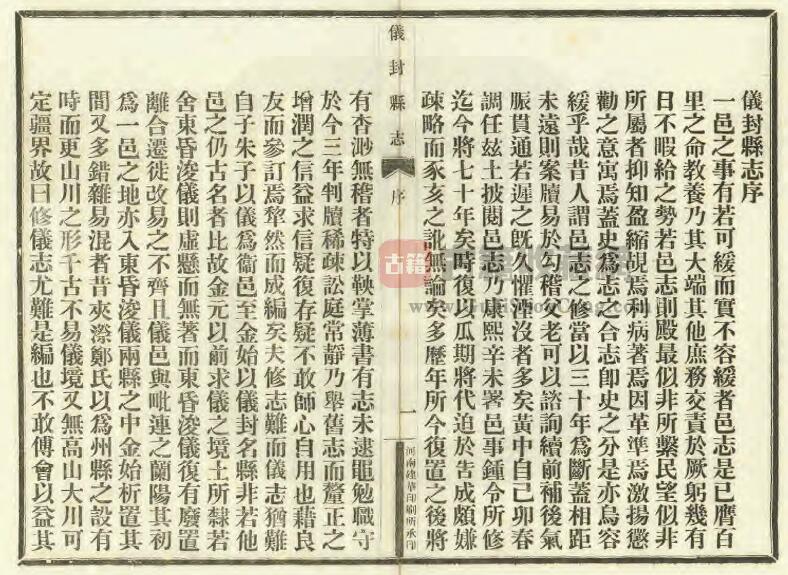 儀封縣志序
一邑之事有若可緩而實不容緩者邑志是已膺百
里之命教養乃其大端其他庶務交責於厥躬幾有
日不暇給之勢若邑志則殿最似非所繫民望似非
所屬者抑知盈縮覘焉利病著焉因革準焉激揚懲
勸之意寓焉蓋史爲志之合志卽史之分是亦烏容
緩乎哉昔人謂邑志之修當以三十年爲斷蓋相距
未遠則案牘易於勾稽父老可以諮詢續前補後氣
脈貫通若遲之既久懼湮沒者多矣黃中自己卯春
調任玆土披閱邑志乃康熙辛未署邑事鍾令所修
迄今將七十年矣時復以瓜期將代迫於告成頗嫌
疎略而豕亥之訛無論矣多歷年所今復置之後將
儀封縣志
序
一
河南建華印刷所承印
有杳渺無稽者特以鞅掌薄書有志未逮黽勉職守
於今三年判牘稀疎訟庭常靜乃舉舊志而釐正之
增潤之信益求信疑復存疑不敢師心自用也藉良
友而參訂焉犂然而成編矣夫修志難而儀志猶難
自子朱子以儀爲衞邑至金始以儀封名縣非若他
邑之仍古名者比故金元以前求儀之境土所隸若
舍東昏浚儀則虛懸而無著而東昏浚儀復有廢置
離合遷徙改易之不齊且儀邑與毗連之蘭陽其初
爲一邑之地亦入東昏浚儀兩縣之中金始析置其
間又多錯雜易混者昔夾漈鄭氏以爲州縣之設有
時而更山川之形千古不易儀境又無高山大川可
定疆界故曰修儀志尤難是編也不敢傅會以益其
古籍